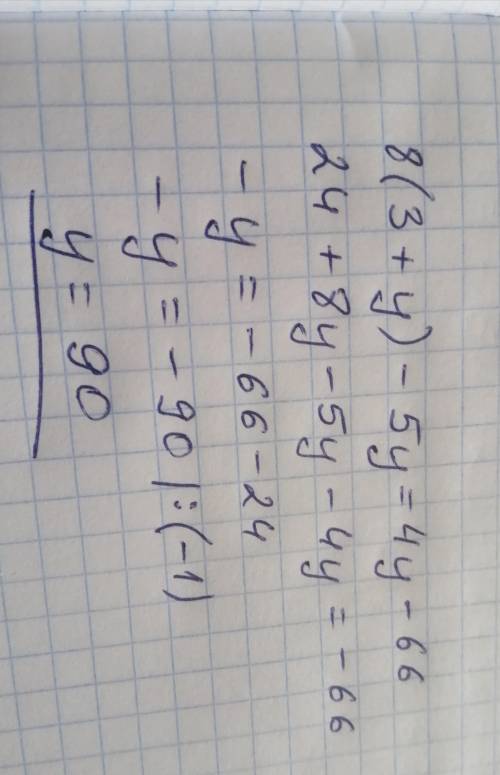 8(3+y)-5y=4y-66
24+8y-5y-4y=-66
-y=-66-24
-y=-90 |:(-1)
y=90